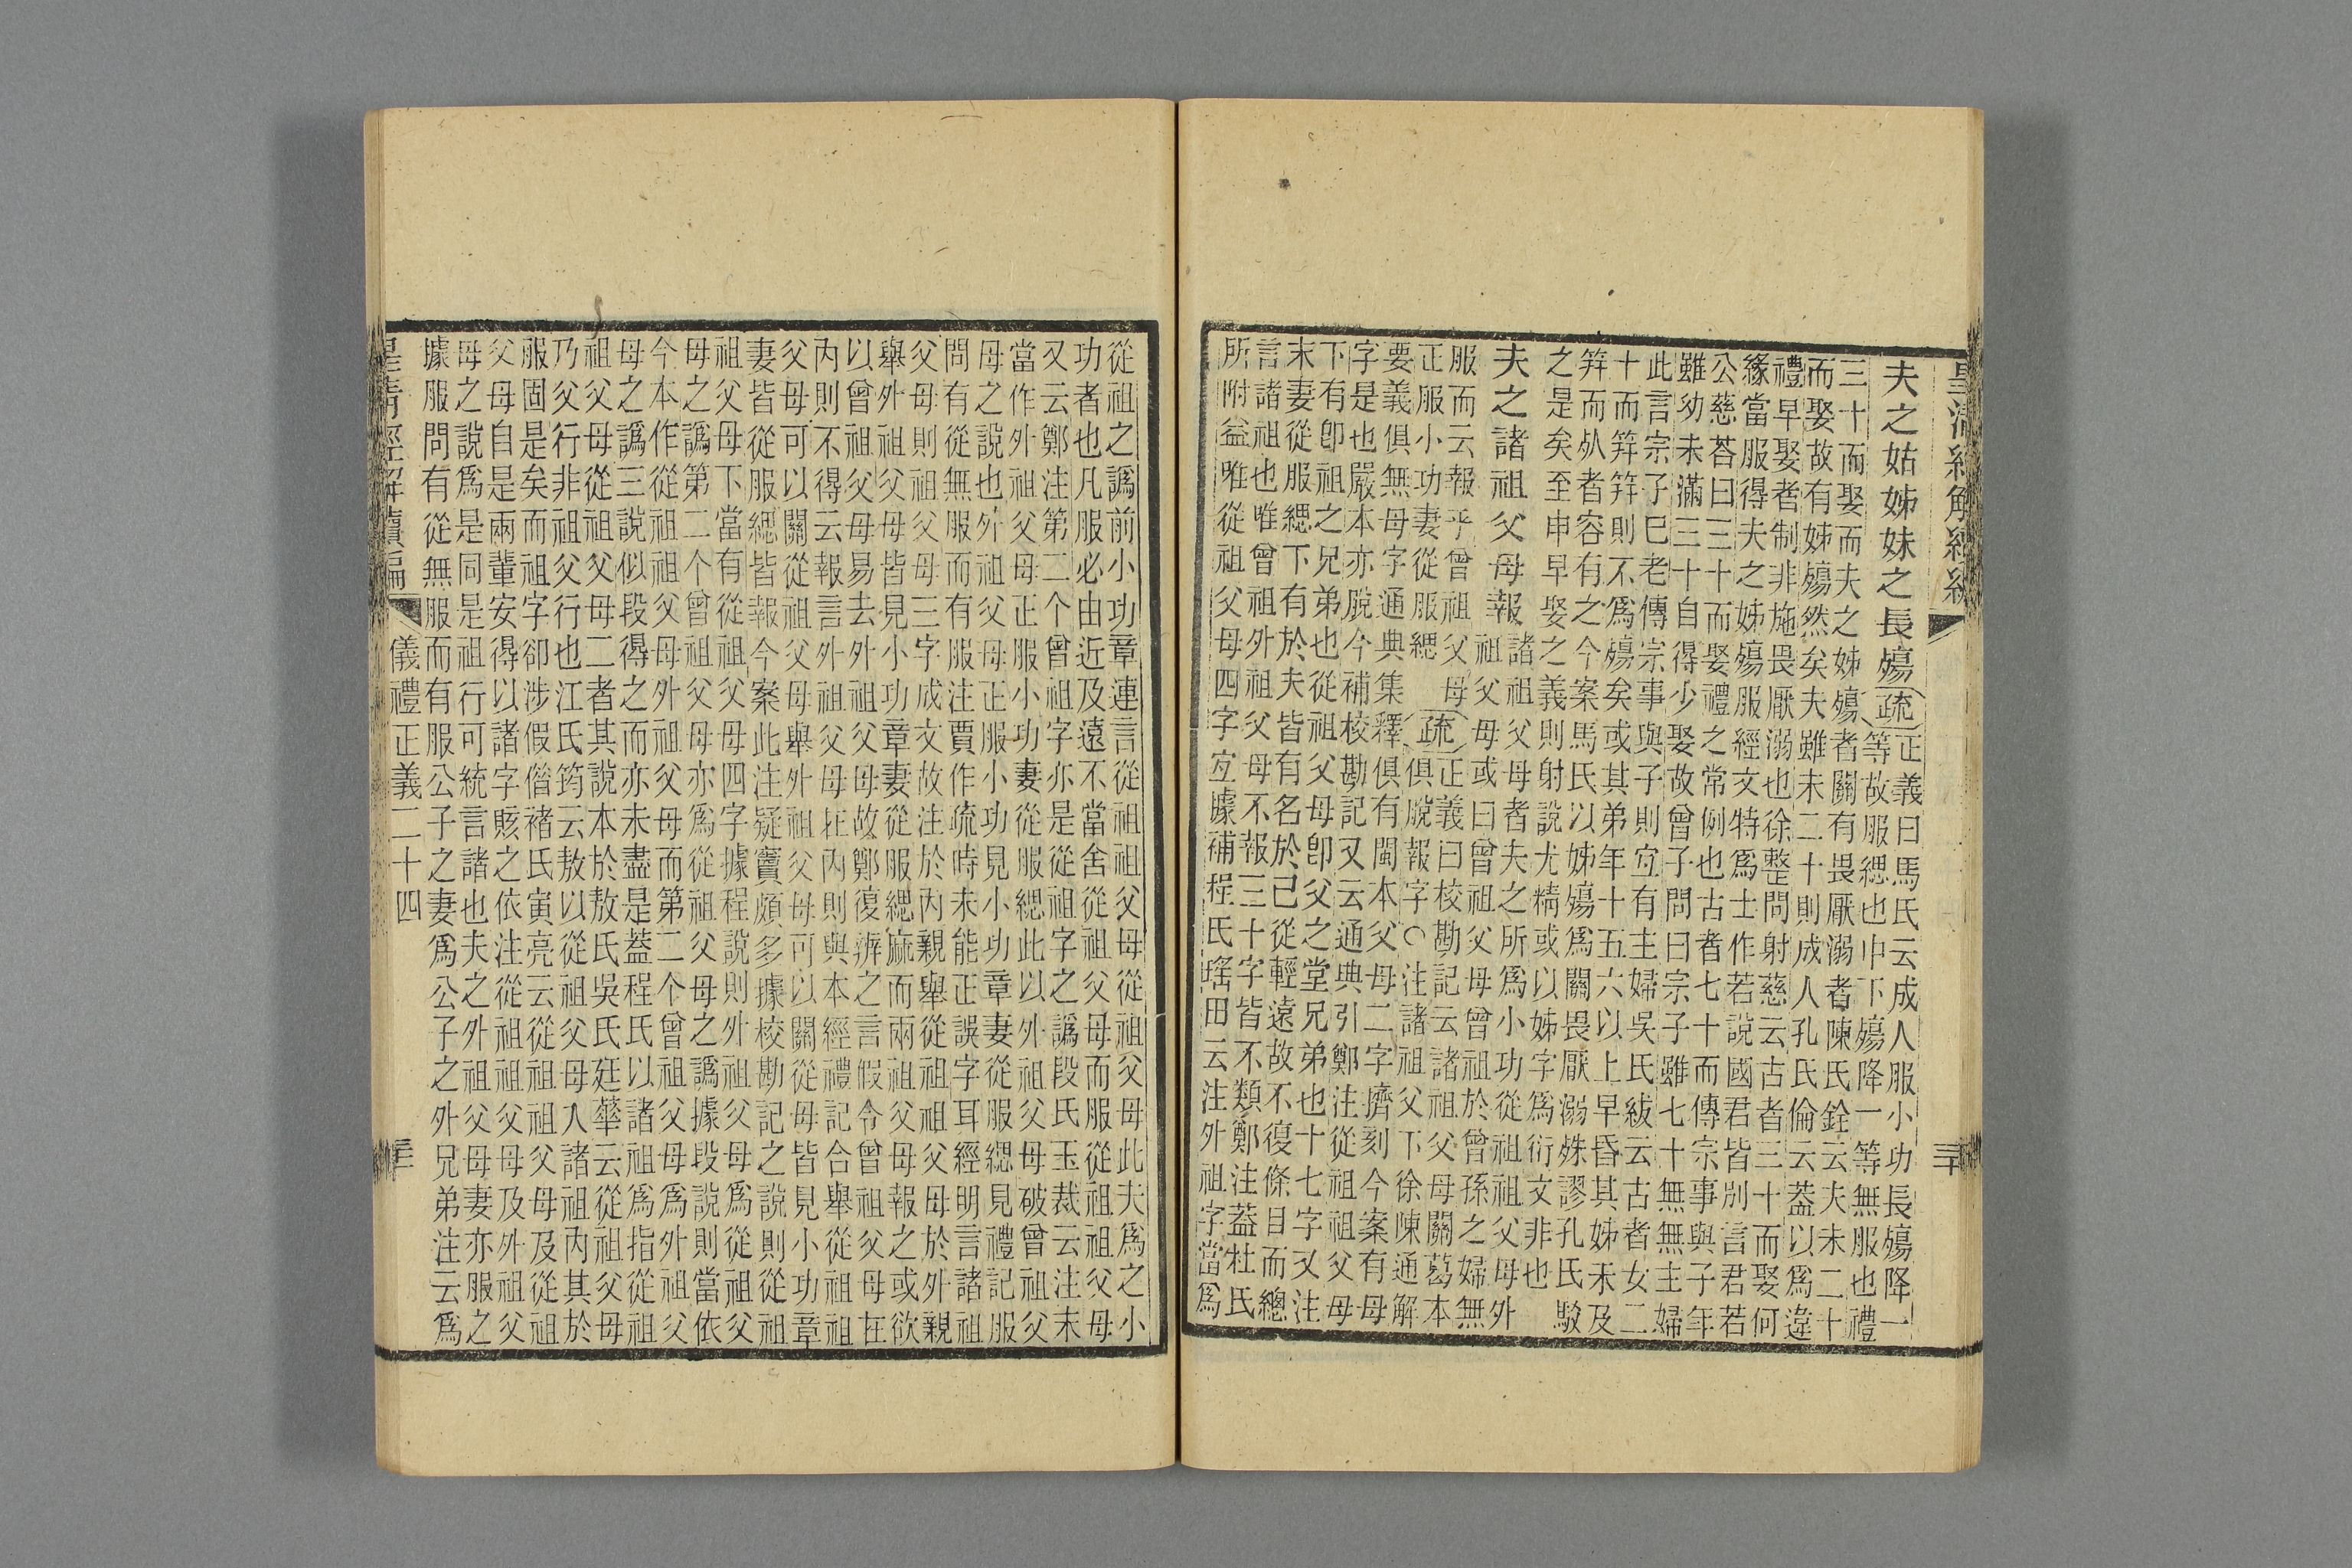 夫之姑姊妹之長殤疏正義曰馬氏云成人服小功長殤降一
等故服緦也中下殤降一等無服也禮
三十而娶而夫之姊殤者關有畏厭溺者陳氏銓云夫未二十
而娶故有姊殤然矣夫雖未二十則成人孔氏倫云蓋以爲違
禮早娶者制非施畏厭溺也徐整問射慈云古者三十而娶何
緣當服得夫之姊殤服經文特爲士作若說國君皆別言君若
公慈荅曰三十而娶禮之常例也古者七十而傳宗事與子年
雖幼未滿三十自得少娶故曾子問曰宗子雖七十無無主婦
此言宗子已老傳宗事與子則宜有主婦吳氏紱云古者女二
十而筓筓則不爲殤矣或其弟年十五六以上早昏其姊未及
筓而死者容有之今案馬氏以姊殤爲關畏厭溺殊謬孔氏駮
之是矣至申早娶之義則射說尤精或以姊字爲衍文非也
夫之諸祖父母報諸祖父母者夫之所爲小功從祖祖父母外
祖父母或曰曾祖父母曾祖於曾孫之婦無
服而云報乎曾祖父母
正服小功妻從服緦疏正義曰校勘記云諸祖父母關葛本
俱脫報字○注諸祖父下徐陳通解
要義俱無母字通典集釋俱有閩本父母二字擠刻今案有母
字是也嚴本亦脫今補校勘記又云通典引鄭注從祖祖父母
下有卽祖之兄弟也從祖父母卽父之堂兄弟也十七字又注
末妻從服緦下有於夫皆有名於己從輕遠故不復條目而總
言諸祖也唯曾祖外祖父母不報三十字皆不類鄭注蓋杜氏
所附益唯從祖父母四字宜據補程氏瑤田云注外祖字當爲
從祖之譌前小功章連言從祖祖父母從祖父母此夫爲之小
功者也凡服必由近及遠不當舍從祖父母而服從祖祖父母
又云鄭注第二个曾祖字亦是從祖字之譌段氏玉裁云注末
當作外祖父母正服小功妻從服緦此以外祖父母破曾祖父
母之說也外祖父母正服小功見小功章妻從服緦見禮記服
問有從無服而有服注賈作疏時未能正誤字耳經明言諸祖
父母則祖父母三字成文故注於內親舉從祖祖父母於外親
舉外祖父母皆見小功章妻從服緦麻而兩祖父母報之或欲
以曾祖父母易去外祖父母故鄭復辨之言假令曾祖父母在
內則不得云報言外祖父母在內則與本經禮記合舉從祖祖
父母可以關從祖父母舉外祖父母可以關從母皆見小功章
妻皆從服緦皆報今案此注疑竇頗多據校勘記之說則從祖
祖父母下當有從祖父母四字據程說則外祖父母爲從祖父
母之譌第二个曾祖父母亦爲從祖父母之譌據段說則當依
今本作從祖祖父母外祖父母而第二个曾祖父母爲外祖父
母之譌三說似段得之而亦未盡是蓋程氏以諸祖爲指從祖
祖父母從祖父母二者其說本於敖氏吳氏廷華云從祖父母
乃父行非祖父行也江氏筠云敖以從祖父母入諸祖內其於
服固是矣而祖字卻涉假借褚氏寅亮云從祖祖父母及從祖
父母自是兩輩安得以諸字賅之依注從祖祖父母及外祖父
母之說爲是同是祖行可統言諸也夫之外祖父母妻亦服之
據服問有從無服而有服公子之妻爲公子之外兄弟注云爲
儀禮正義二十四